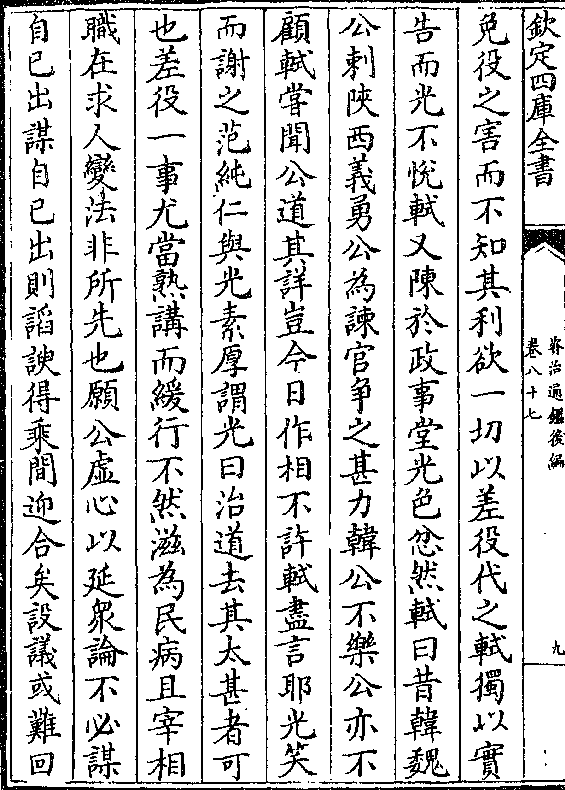 欽定四庫全書
資治通鑑後編
卷八十七
九
免役之害而不知其利欲一切以差役代之軾獨以實
告而光不悅軾又陳於政事堂光色忿然軾曰昔韓魏
公刺陜西義勇公為諫官争之甚力韓公不樂公亦不
顧軾嘗聞公道其詳豈今日作相不許軾盡言耶光笑
而謝之范純仁與光素厚謂光曰治道去其太甚者可
也差役一事尤當熟講而緩行不然滋為民病且宰相
職在求人變法非所先也願公虛心以延衆論不必謀
自已出謀自已出則謟諛得乘間迎合矣設議或難回